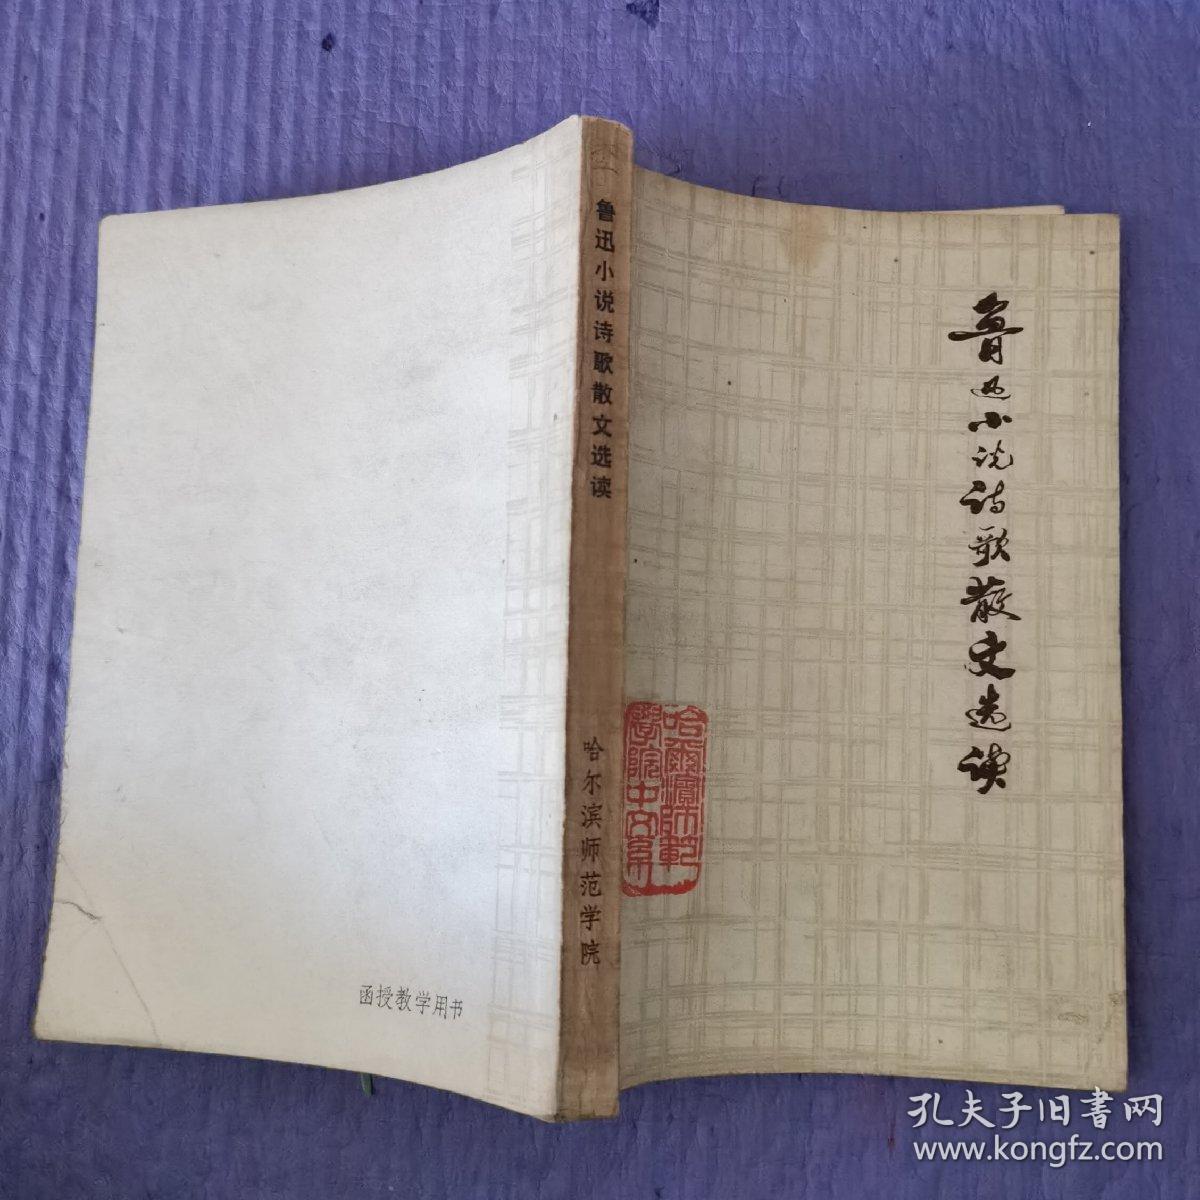 鲁迅小说诗歌散文选读
哈尔滨师范学院
鲁迅小说诗歌散文选读
哈爾濱師範
學院中文系
函授教学用书
孔夫子旧書网
www.kongfz.com